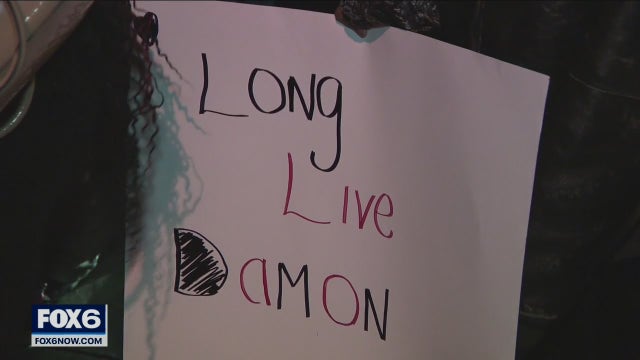 LONg
Live
DaMON
FOX6
FOX6NOW.COM